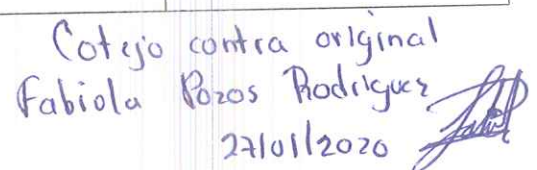 Cotejo contra original
Fabiola Pozos Rodriguez
27/01/2020